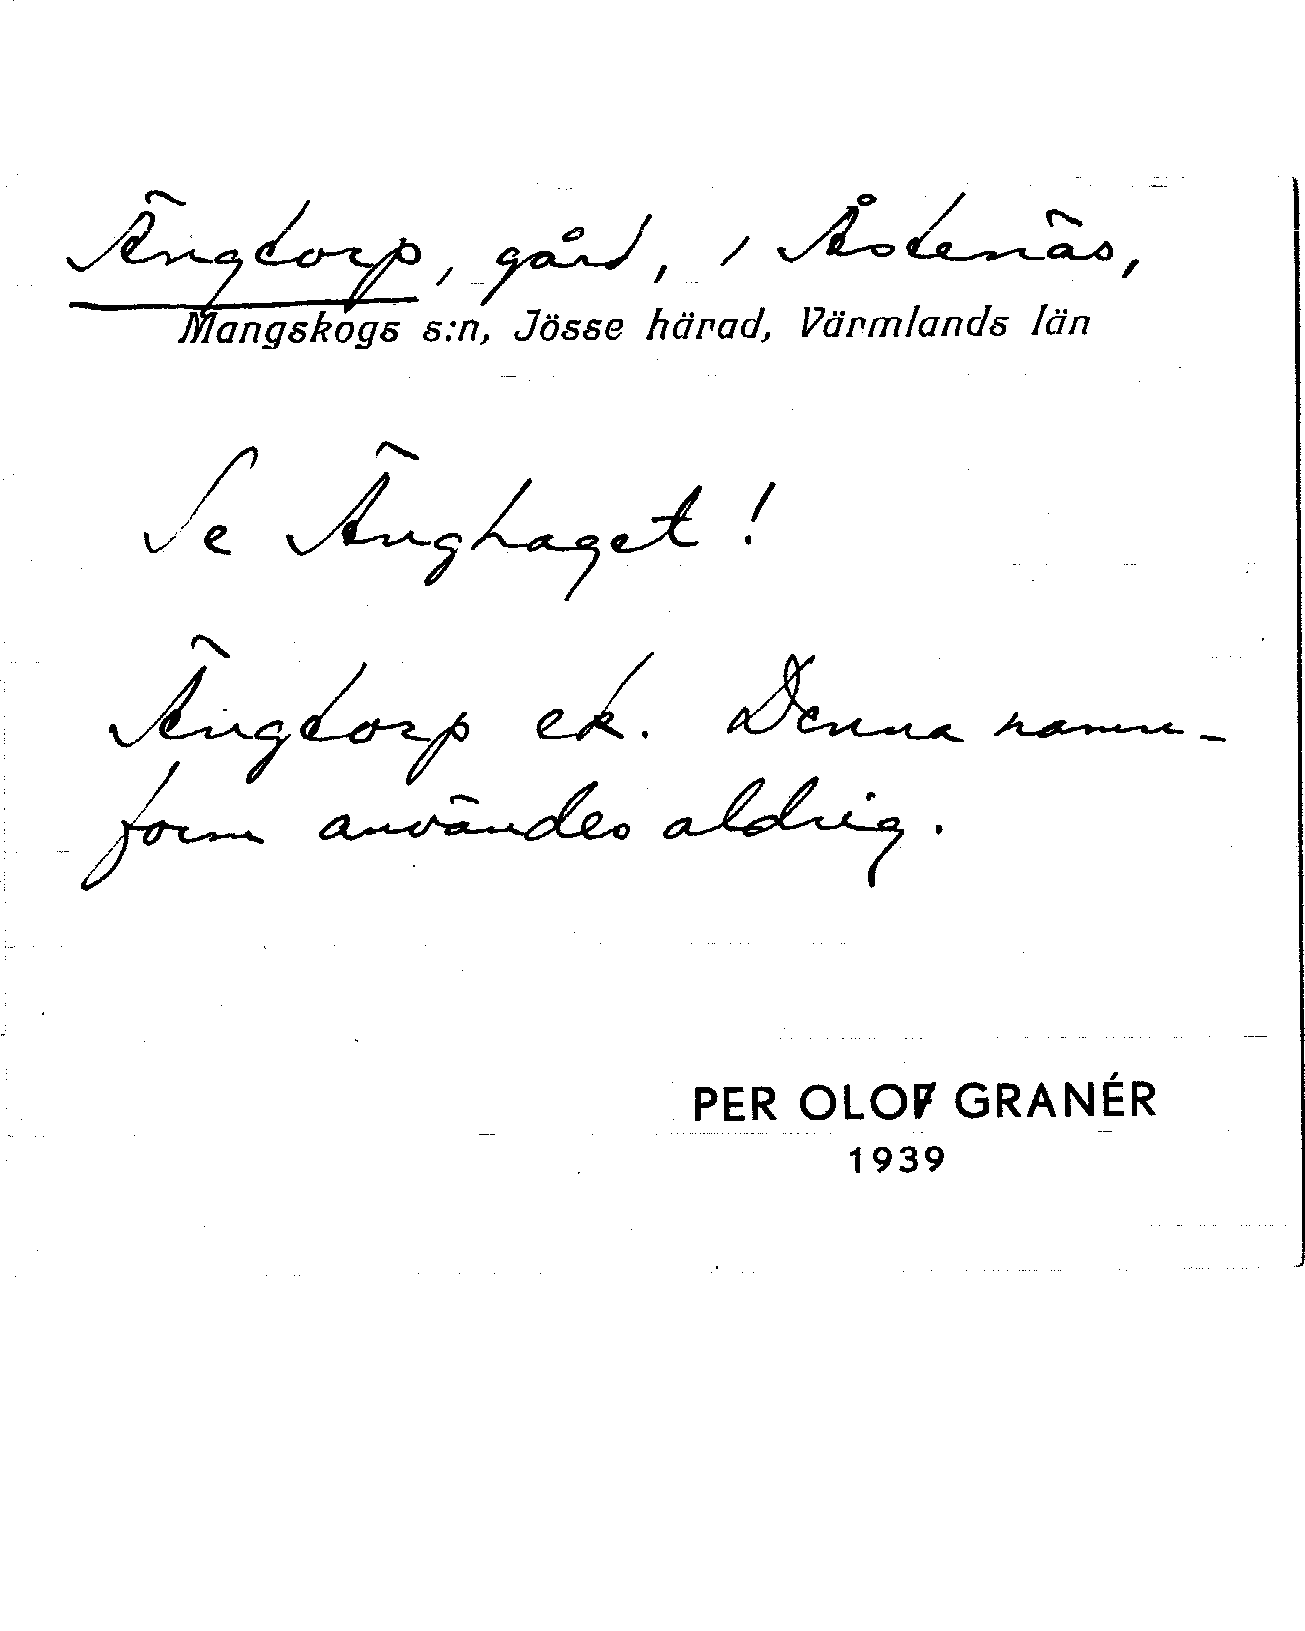 Ängtorp, gård, i Åstenäs,
Mangskogs s:n, Jösse härad, Värmlands län
Se Änghaget!
Ängtorp ek. Denna namn-
form användes aldrig.
PER OLOF GRANÉR
1939